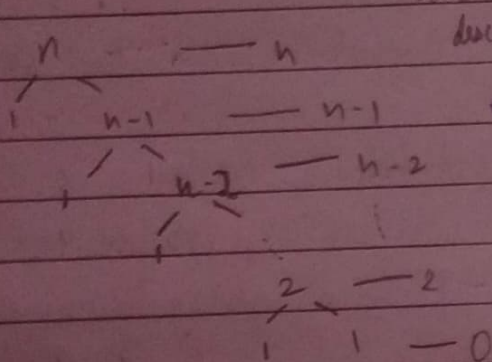 n — n desc
1 n-1 — n-1
1 n-2 — n-2
1
2 — 2
1 1 — 0